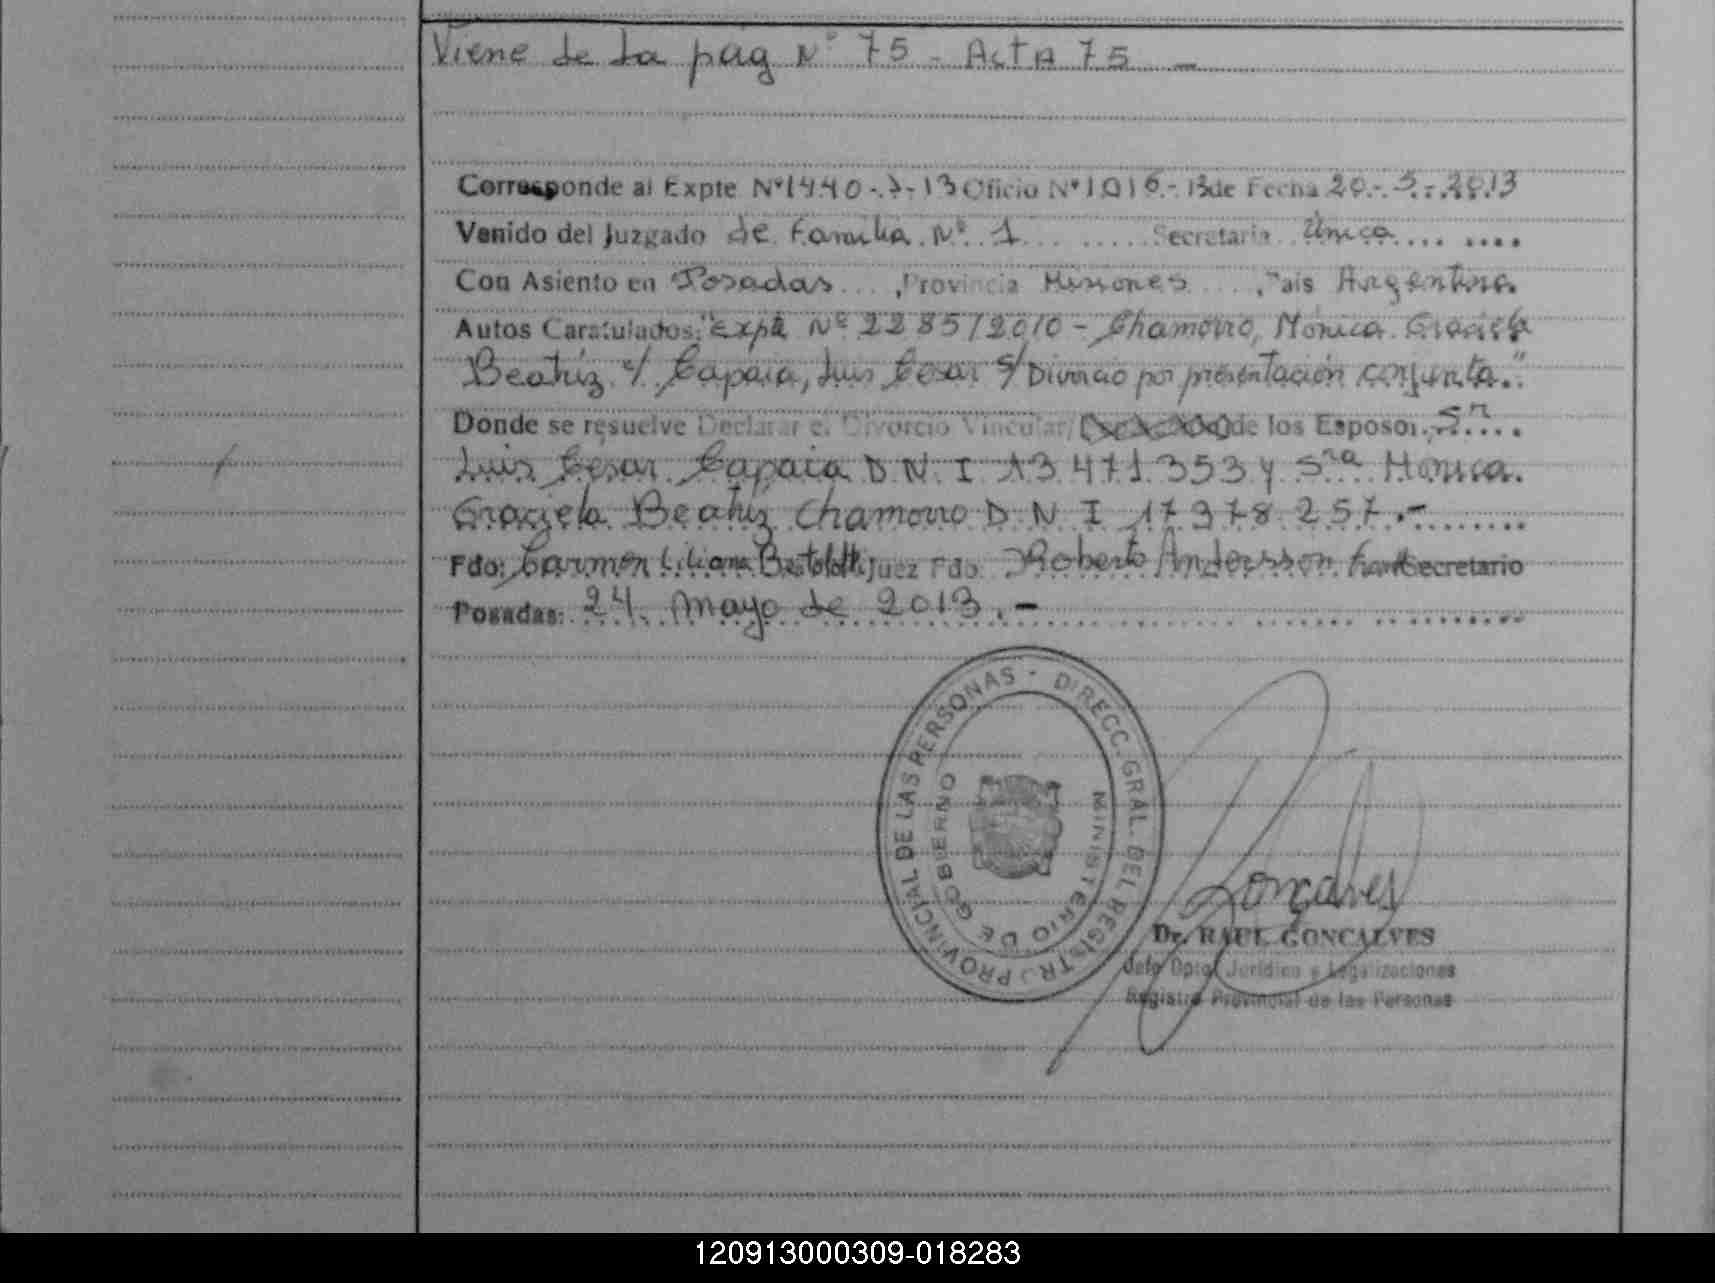 Viene de la pág Nº 75 - Acta 75 -
Corresponde al Expte Nº 1440-J-13 Oficio Nº 1016-13 de Fecha 20-5-2013
Venido del Juzgado de Familia Nº 1 Secretaria Única
Con Asiento en Posadas, Provincia Misiones, Pais Argentina.
Autos Caratulados: "Expte Nº 2285/2010 - Chamorro, Mónica Graciela
Beatriz c/ Capaia, Luis Cesar s/ Divorcio por presentación conjunta."
Donde se resuelve Declarar el Divorcio Vincular/ de los Esposos Sr.
Luis Cesar Capaia D.N.I 13.471.353 y Sra Mónica
Graciela Beatriz Chamorro D.N.I 17.378.257.-
Fdo: Carmen Liliana Bertolotti Juez Fdo. Roberto Andersson Secretario
Posadas: 24 mayo de 2013.-
DIRECC. GRAL. DEL REGISTRO PROVINCIAL DE LAS PERSONAS -
MINISTERIO DE GOBIERNO
Goncalves
Dr. RAUL GONCALVES
Jefe Dpto. Jurídico y Legalizaciones
Registro Provincial de las Personas
120913000309-018283